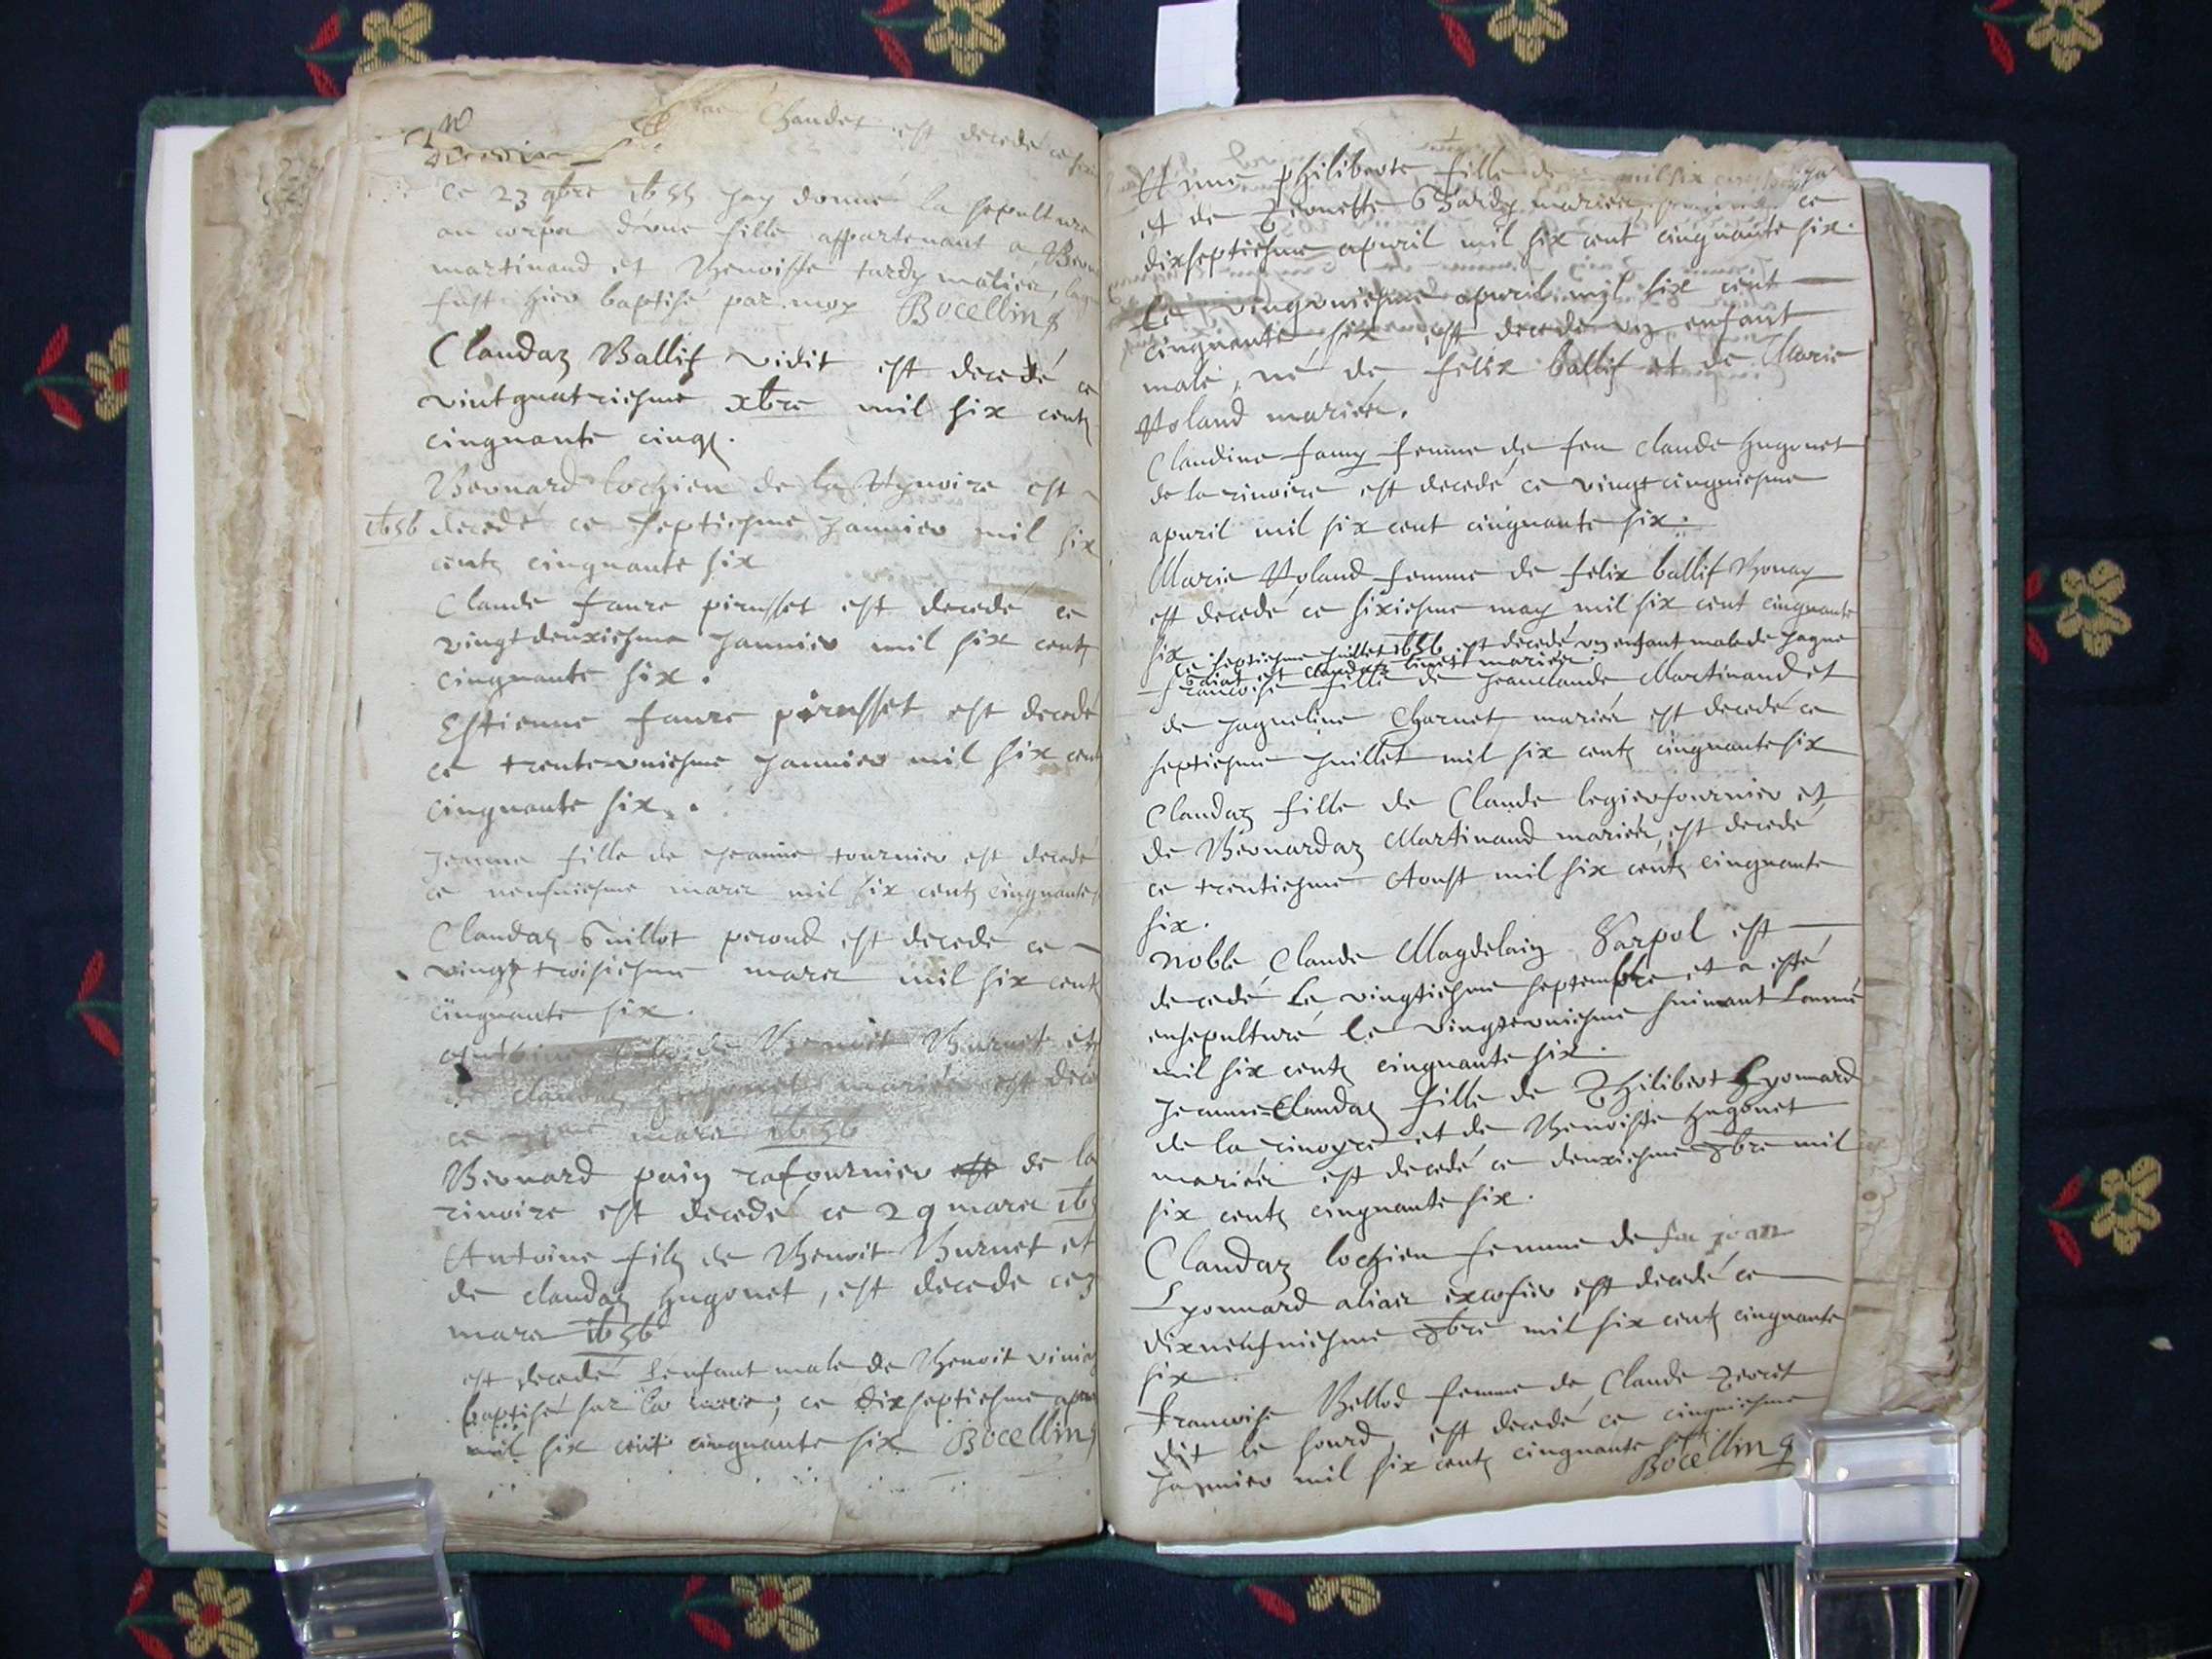 Chaudet est decedé ce
ce 23 9bre 1655 jay donné la sepulture
au corps d'vne fille appartenant a
martinand et Benoiste tardy mariés,
fust hier baptisé par moy Bocellins
Claudaz Ballif vidit est decedé ce
vintquatriesme xbre mil six centz
cinquante cinq.
Bernard lochien de la est
1656 decedé ce septiesme Januier mil six
centz cinquante six
Claude faure pirasset est decedé ce
vingtdeuxiesme Januier mil six centz
cinquante six.
Estienne faure pirasset est decedé
ce trentevniesme Januier mil six cent
cinquante six.
Jeanne fille de Jeanne tournier est decedé
ce neufuiesme mars mil six centz cinquante
Claudaz Guillot perond est decedé ce
vingt troisiesme mars mil six centz
cinquante six.
de Benoit Burnet et
de claudaz hugonet mariés est
ce mars 1656
Bernard pain rafournier est de la
rinoire est decedé ce 29 mars
Antoine filz de Benoit Burnet et
de claudaz hugonet, est decede ce
mars 1656
est decedé lenfant male de Benoit
baptisé par la mere; ce dixseptiesme
mil six cent cinquante six. Bocellins
Anne philiberte fille de
et de Pernette Tardy mariés ce
dixseptiesme apuril mil six cent cinquante six.
Le vingvniesme apuril mil six cent
cinquante six est decede vn enfant
male, né de felix ballif et de Marie
Roland mariés.
Claudine famy femme de feu claude hugonet
de la rinoire est decedé ce vingtcinquiesme
apuril mil six cent cinquante six.
Marie Roland femme de felix ballif
est decedé ce sixiesme may mil six cent cinquante
six
ce septiesme juillet 1656 est decedé vn enfant male de Jaque
et claudaz mariés.
francoise fille de Jeanclaude Martinand et
de Jaqueline Charnet mariés est decedé ce
septiesme Juillet mil six centz cinquante six
Claudaz fille de Claude legier fournier et
de Bernardaz Martinand mariés, est decedé
ce trentiesme Aoust mil six centz cinquante
six.
Noble Claude Magdelain Varpol est
decedé le vingtiesme septembre et a esté
ensepulturé le vingtevniesme suiuant lannée
mil six centz cinquante six.
Jeanne Claudaz fille de Philibert Lyonnard
de la rinoyre et de Benoiste hugonet
mariés est decedé ce deuxiesme 8bre mil
six centz cinquante six.
Claudaz lochien femme de feu jean
Lyonnard alias excofier est decedé ce
dixneufuiesme 8bre mil six centz cinquante
six
francoise Bellod femme de Claude
dit le sourd est decedé ce cinquiesme
Januier mil six centz cinquante
Bocellins